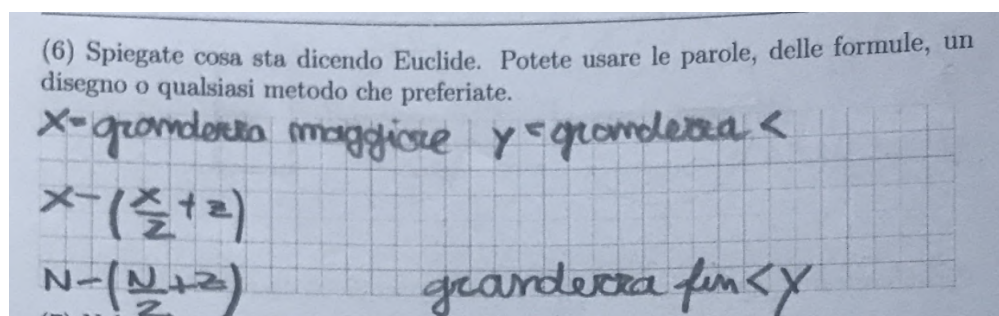 (6) Spiegate cosa sta dicendo Euclide. Potete usare le parole, delle formule, un
disegno o qualsiasi metodo che preferiate.
X= grandezza maggiore y = grandezza <
X-(x/2 + z)
N-(N/2 + z) grandezza fin < Y